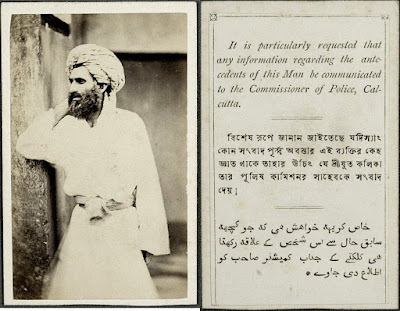 It is particularly requested that
any information regarding the ante-
cedents of this Man be communicated
to the Commissioner of Police, Cal-
cutta.
বিশেষ রূপে জানান জাইতেছে যদিস্যাং
কোন সংবাদ পূর্ব্ব অবস্তার এই ব্যক্তির কেহ
জ্ঞাত থাকে তাহার উচিৎ যে শ্রীযুত কলিকা
তার পুলিষ কামিশনর সাহেবকে সংবাদ
দেয়।
خاص کر یہہ خواهش هی که جو کچهه
سابق حال سے اس شخص کے علاقه رکهتا
هی کلکتے کے جناب کمیشنر صاحب کو
اطلاع دی جاوے *